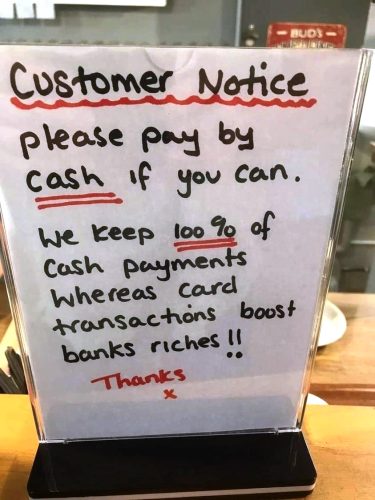 BUD'S
Customer Notice
please pay by
cash if you can.
We keep 100% of
cash payments
whereas card
transactions boost
banks riches!!
Thanks
x